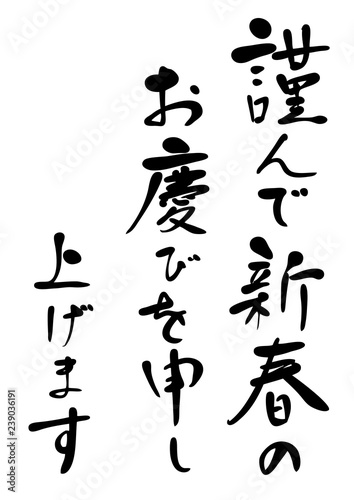 謹んで新春の
お慶びを申し
上げます
Adobe Stock | #239036191